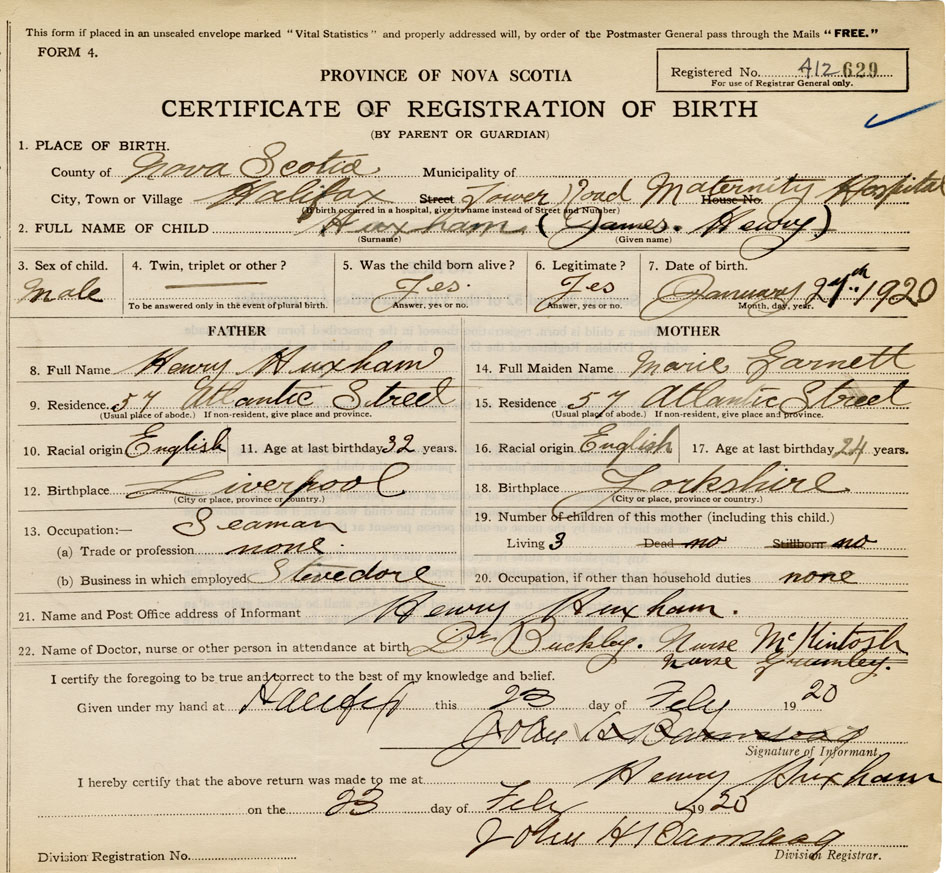 This form if placed in an unsealed envelope marked "Vital Statistics" and properly addressed will, by order of the Postmaster General pass through the Mails "FREE."
FORM 4.
PROVINCE OF NOVA SCOTIA
Registered No. 412 629
For use of Registrar General only.
CERTIFICATE OF REGISTRATION OF BIRTH
(BY PARENT OR GUARDIAN)
1. PLACE OF BIRTH.
County of Nova Scotia Municipality of
City, Town or Village Halifax Street Tower Road Maternity Hospital House No.
(If birth occurred in a hospital, give its name instead of Street and Number)
2. FULL NAME OF CHILD Huxham (James. Henry)
(Surname) (Given name)
3. Sex of child. 4. Twin, triplet or other? 5. Was the child born alive? 6. Legitimate? 7. Date of birth.
Male Yes. Yes January 27th 1920
To be answered only in the event of plural birth. Answer, yes or no. Answer, yes or no. Month, day, year.
FATHER MOTHER
8. Full Name Henry Huxham 14. Full Maiden Name Marie Garnett
9. Residence. 57 Atlantic Street 15. Residence 57 Atlantic Street
(Usual place of abode.) If non-resident, give place and province. (Usual place of abode.) If non-resident, give place and province.
10. Racial origin English 11. Age at last birthday 32 years. 16. Racial origin English 17. Age at last birthday 24 years.
12. Birthplace Liverpool 18. Birthplace Yorkshire
(City or place, province or country.) (City or place, province or country.)
13. Occupation:— Seaman 19. Number of children of this mother (including this child.)
(a) Trade or profession none. Living 3 Dead no Stillborn no
(b) Business in which employed Stevedore 20. Occupation, if other than household duties none
21. Name and Post Office address of Informant Henry Huxham.
22. Name of Doctor, nurse or other person in attendance at birth Dr Buckley. Nurse McKintosh
nurse
I certify the foregoing to be true and correct to the best of my knowledge and belief.
Given under my hand at Halifax this 23 day of Feby 1920
Signature of Informant
I hereby certify that the above return was made to me at Henry Huxham
on the 23 day of Feby 1920
John H
Division Registration No. Division Registrar.